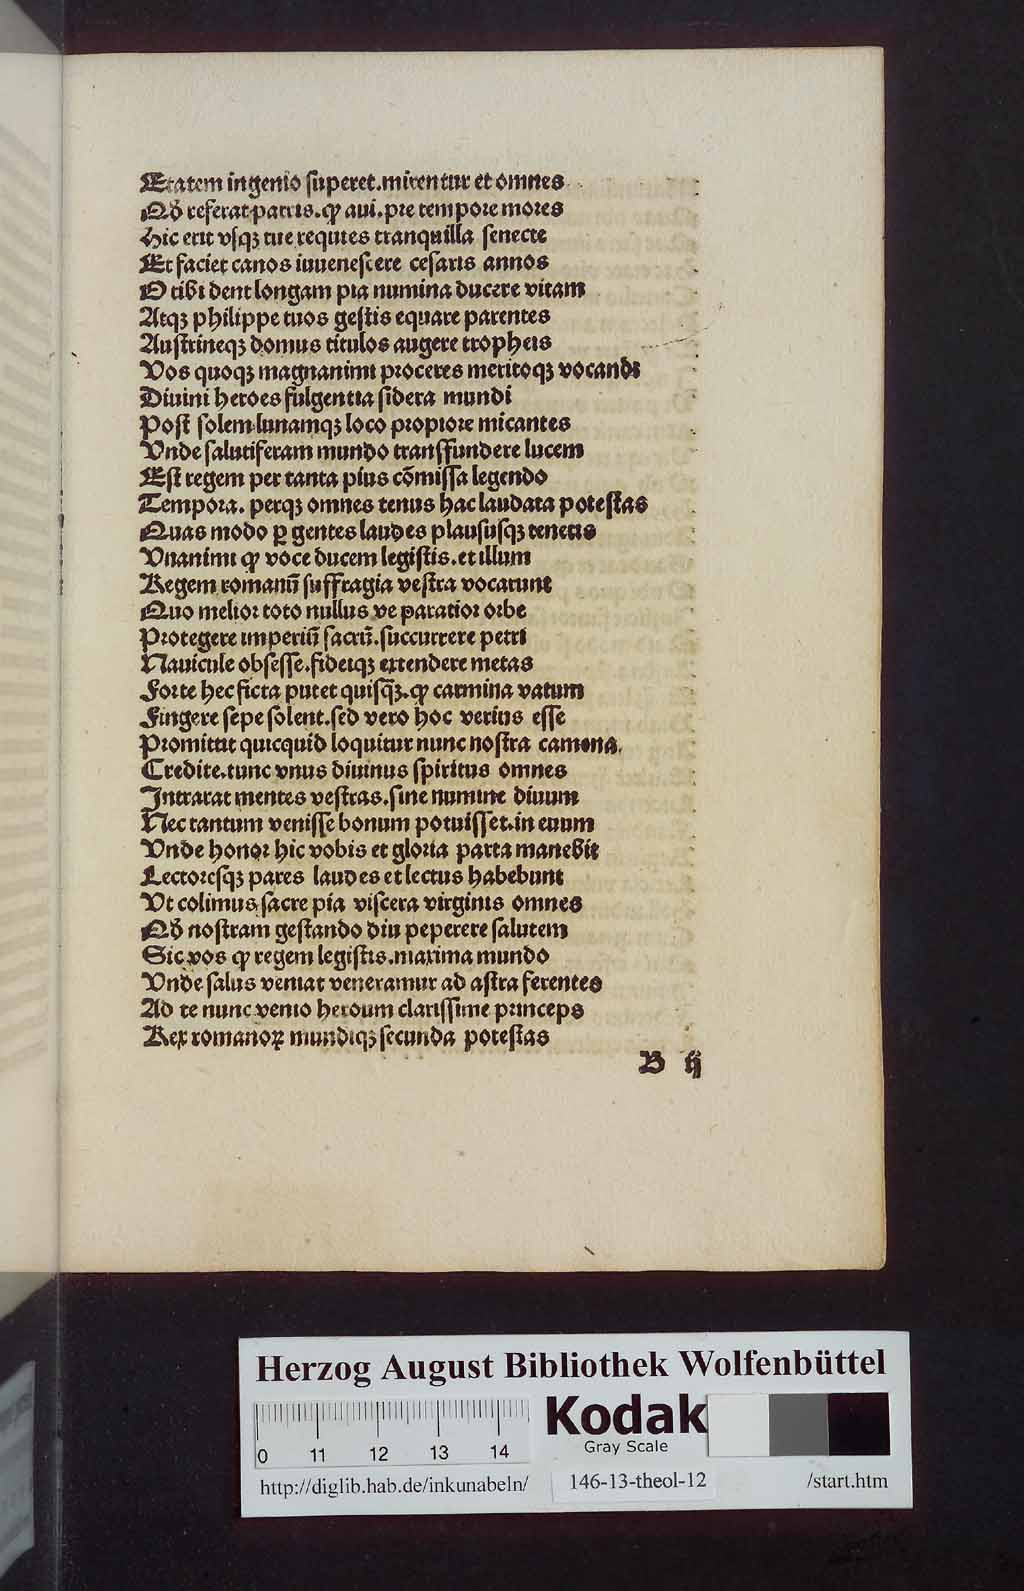 Etatem ingenio superet.mirentur et omnes
Qđ referat patris.ꝙ aui.pre tempore mores
Hic erit vsqꝫ tue requies tranquilla senecte
Et faciet canos iuuenescere cesaris annos
O tibi dent longam pia numina ducere vitam
Atqꝫ philippe tuos gestis equare parentes
Austrineqꝫ domus titulos augere tropheis
Vos quoqꝫ magnanimi proceres meritoqꝫ vocandi
Diuini heroes fulgentia sidera mundi
Post solem lunamqꝫ loco propiore micantes
Vnde salutiferam mundo transfundere lucem
Est regem per tanta pius cōmissa legendo
Tempora. perqꝫ omnes tenus hac laudata potestas
Quas modo ꝑ gentes laudes plaususqꝫ tenetis
Vnanimi ꝙ voce ducem legistis.et illum
Regem romanū suffragia vestra vocarunt
Quo melior toto nullus ve paratior orbe
Protegere imperiū sacrū.succurrere petri
Nauicule obsesse.fideiqꝫ extendere metas
Forte hec ficta putet quisq̄ꝫ.ꝙ carmina vatum
Fingere sepe solent.sed vero hoc verius esse
Promittit quicquid loquitur nunc nostra camena.
Credite.tunc vnus diuinus spiritus omnes
Intrarat mentes vestras.sine numine diuum
Nec tantum venisse bonum potuisset.in euum
Vnde honor hic vobis et gloria parta manebit
Lectoresqꝫ pares laudes et lectus habebunt
Vt colimus sacre pia viscera virginis omnes
Qđ nostram gestando diu peperere salutem
Sic vos ꝙ regem legistis.maxima mundo
Vnde salus veniat veneramur ad astra ferentes
Ad te nunc venio heroum clarissime princeps
Rex romanoꝝ mundiqꝫ secunda potestas
B ij
Herzog August Bibliothek Wolfenbüttel
0 11 12 13 14
Kodak
Gray Scale
http://diglib.hab.de/inkunabeln/ 146-13-theol-12 /start.htm